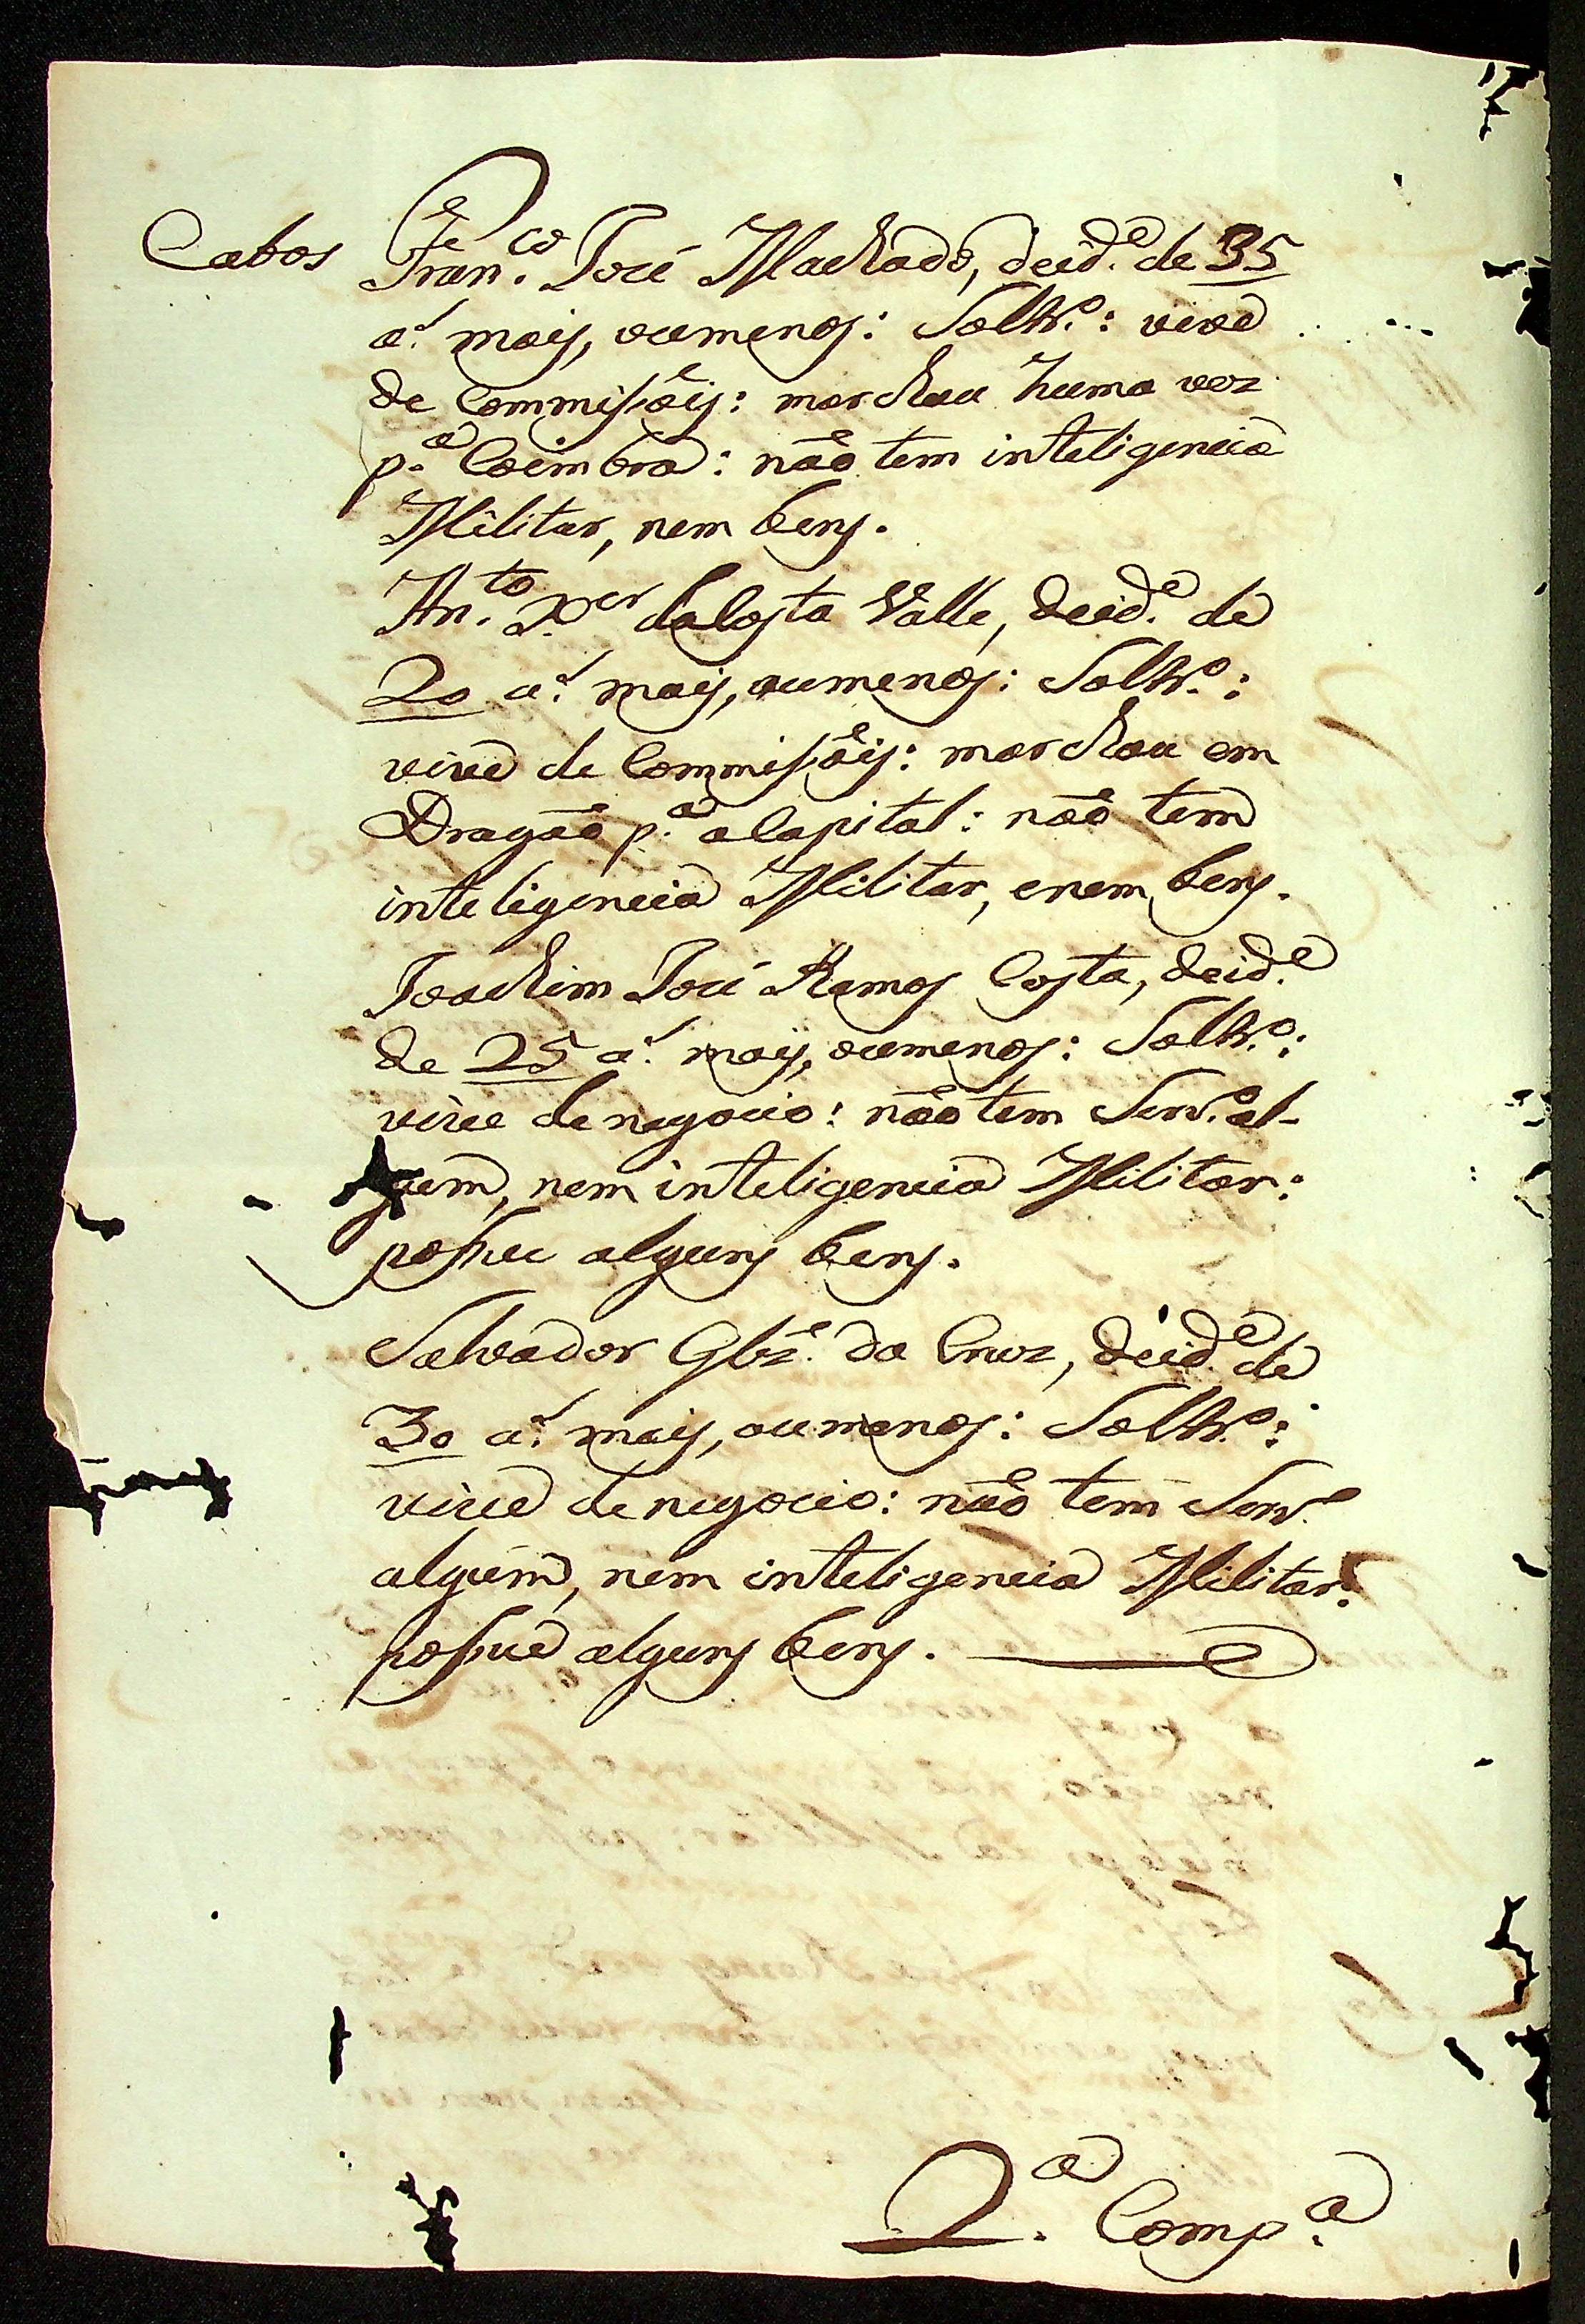 Cabos Fran.co José Machado, deid.e de 35
a.s mais, oumenos: Soltr.o: vive
de Commissõis: marchou huma vez
p.a Coimbra: não tem inteligencia
Militar, nem bens.
An.to X.er daCosta Valle, deid.e de
20 a.s mais, oumenos: Soltr.o:
vive de Commissõis: marchou em
Dragão p.a aCapital: não tem
inteligencia Militar, enem bens.
Joachim José Ramos Costa, deid.e
de 25 a.s mais, oumenos: Soltr.o:
vive denegocio: não tem Serv.o al-
gum, nem inteligencia Militar:
possue alguns bens.
Salvador Glz.e da Cruz, deid.e de
30 a.s mais, oumenos: Soltr.o:
vive denegocio: não tem Serv.o
algum, nem inteligencia Militar:
possue alguns bens.
2.a Comp.a